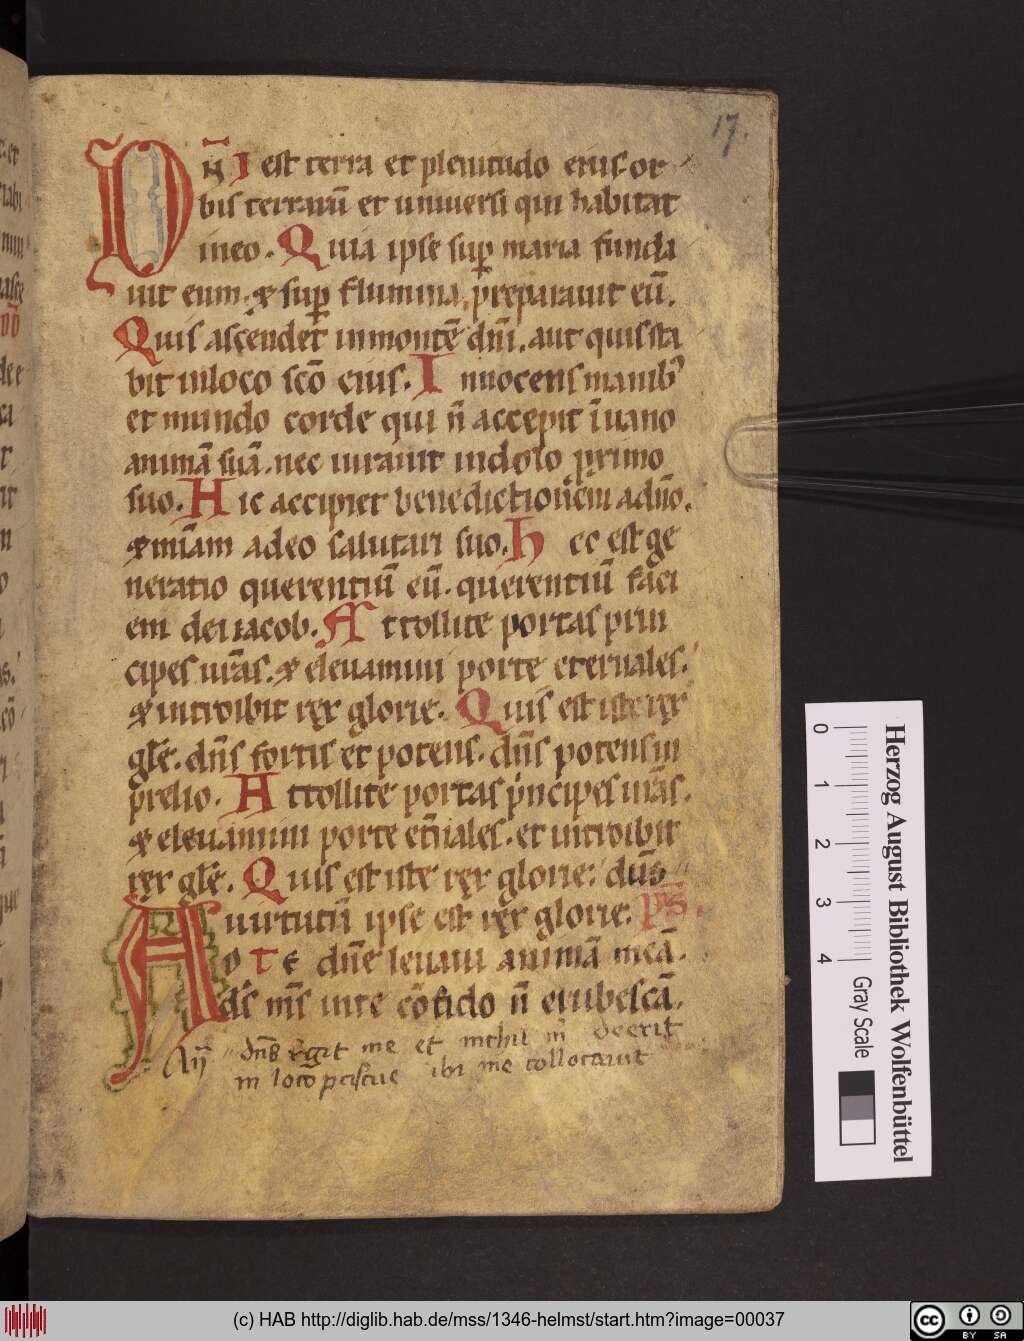 17.
Dn̄I est terra et plenitudo eius·or
bis terraru̅ et uniuersi qui habitat
ineo. Quia ipse sup maria funda
uit eum. & sup flumina preparauit eu̅.
Quis ascendet inmonte̅ dn̅i. aut quis sta
bit inloco sc̅o eius. Innocens manib;
et mundo corde qui n̅ accepit i̅uano
anima̅ sua̅. nec iurauit indolo primo
suo. Hic accipiet benedictione̅m adn̅o.
& mi̅am adeo salutari suo. hec est ge
neratio querentiu̅ eu̅. querentiu̅ faci
em dei iacob. Attollite portas prin
cipes ur̅as. & eleuamini porte eternales.
& introibit rex glorie. Quis est iste rex
gl̅e. dn̅s fortis et potens. dn̅s potens in
prelio. Attollite portas pncipes ur̅as.
& eleuamini porte et̅nales. et introibit
rex gl̅e. Quis est iste rex glorie: dn̅s
uirtutu̅ ipse est rex glorie. ps̅.
Ad te dn̅e leuaui anima̅ mea̅.
ds̅ ms̅ inte co̅fido n̅ erubesca̅.
dn̅s regit me et nichil m deerit
in loco pascue ibi me collocauit
Herzog August Bibliothek Wolfenbüttel
0 1 2 3 4
Gray Scale
(c) HAB http://diglib.hab.de/mss/1346-helmst/start.htm?image=00037
cc BY SA